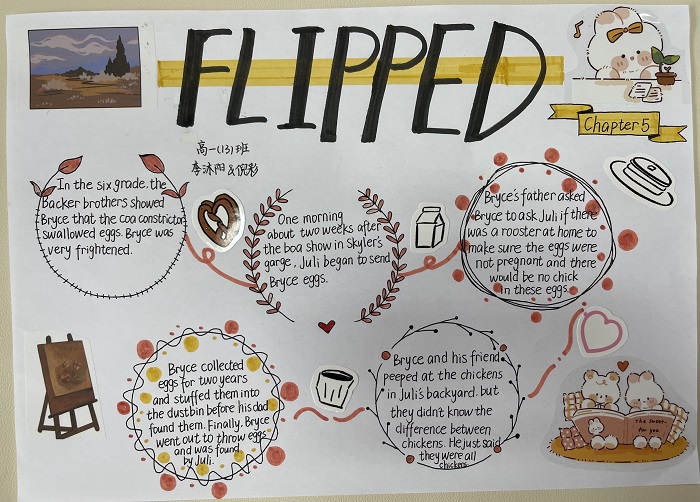 FLIPPED
Chapter 5
高一(13)班
李沐阳&倪彩
In the six grade. the
Backer brothers showed
Bryce that the coa constrictor
swallowed eggs. Bryce was
very frightened.
One morning
about two weeks after
the boa show in Skyler's
garge, Juli began to send
Bryce eggs.
Bryce's father asked
Bryce to ask Juli if there
was a rooster at home to
make sure the eggs were
not pregnant and there
would be no chick
in these eggs.
Bryce and his friend
peeped at the chickens
in Juli's backyard. but
they didn't know the
difference between
chickens. He just said
they were all
chickens.
Bryce collected
eggs for two years
and stuffed them into
the dustbin before his dad
found them. Finally, Bryce
went out to throw eggs
and was found
by Juli.
The sweet
for you